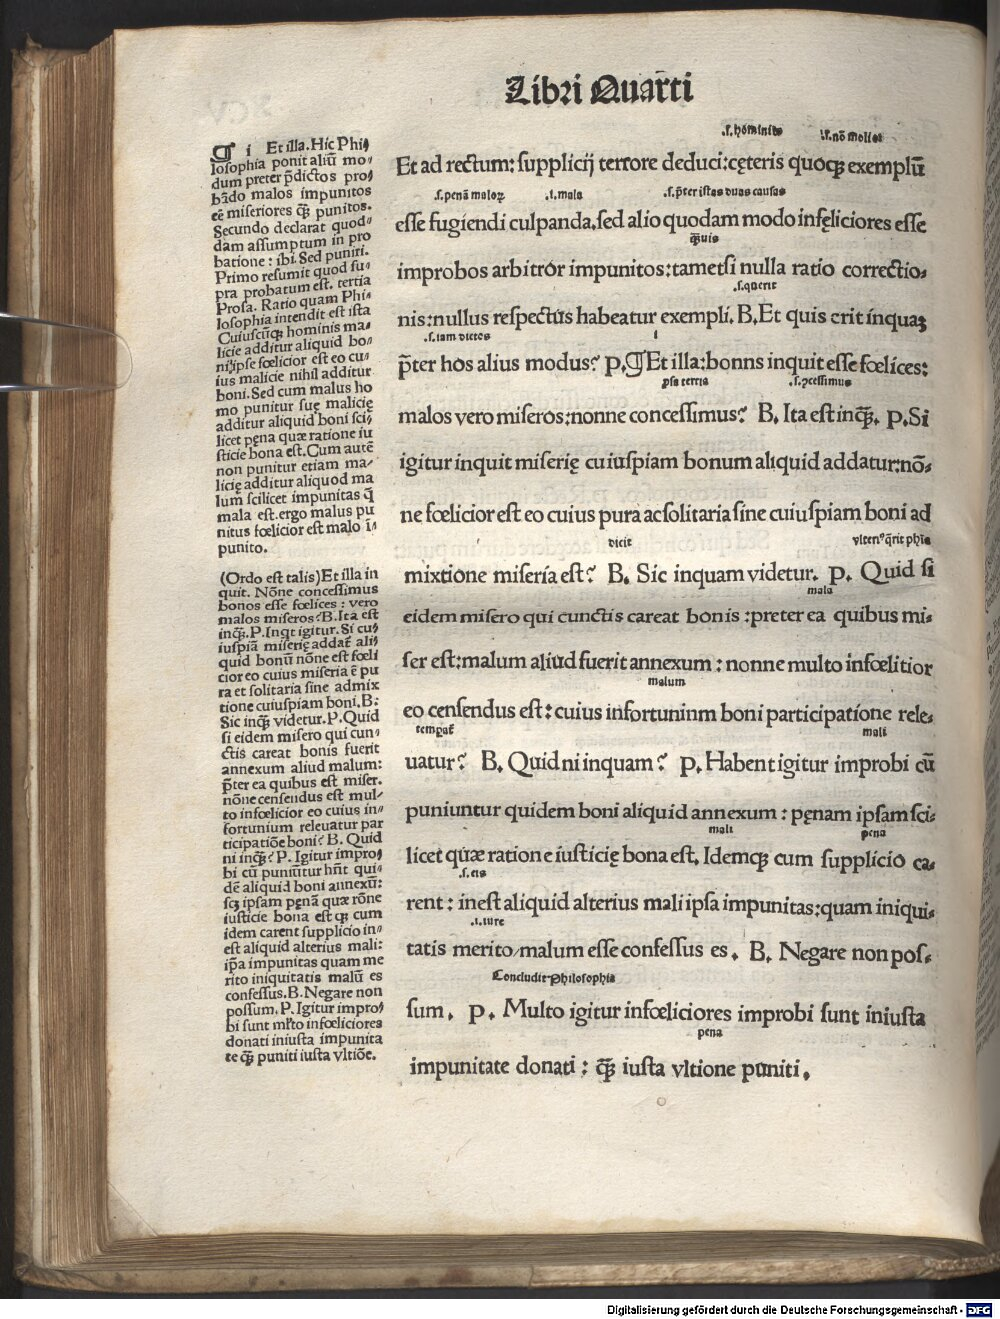 Libri Quarti
¶ i Et illa. Hic Phi
losophia ponit aliū mo
dum preter p̄dictos pro
bādo malos impunitos
eē miseriores q̄ꝫ punitos.
Secundo declarat quod
dam assumptum in pro
batione : ibi. Sed puniri.
Primo resumit quod su
pra probatum est. tertia
Prosa. Ratio quam Phi
losophia intendit est ista
Cuiuscūqꝫ hominis ma
licie additur aliquid bo
ni: ipse fœlicior est eo cu
ius malicie nihil additur
boni. Sed cum malus ho
mo punitur suę malicię
additur aliquid boni sci
licet pęna quæ ratione iu
sticie bona est. Cum autē
non punitur etiam ma
licię additur aliquod ma
lum scilicet impunitas q̄
mala est. ergo malus pu
nitus fœlicior est malo ī
punito.
(Ordo est talis) Et illa in
quit. Nōne concessimus
bonos esse fœlices : vero
malos miseros? B. Ita est
inqꝫ. P. Inqt igitur. Si cu
iuspiā miserię addat̄ ali
quid bonū nōne est fœli
cior eo cuius miseria ē pu
ra et solitaria sine admix
tione cuiuspiam boni. B:
Sic inqꝫ videtur. P. Quid
si eidem misero qui cun
ctis careat bonis fuerit
annexum aliud malum:
p̄ter ea quibus est miser.
nōne censendus est mul
to infœlicior eo cuius in
fortunium releuatur par
ticipatiōe boni? B. Quid
ni inqꝫ? P. Igitur impro
bi cū puniūtur hn̄t qui
dē aliquid boni annexū:
scꝫ ipsam pęnā quæ rōne
iusticie bona est qꝫ cum
idem carent supplicio in
est aliquid alterius mali:
ip̄a impunitas quam me
rito iniquitatis malū es
confessus. B. Negare non
possum. P. Igitur impro
bi sunt ml̄to infœliciores
donati iniusta impunita
te q̄ꝫ puniti iusta vltiōe.
.s. homines .s. nō malos
Et ad rectum: supplicij terrore deduci: cęteris quoqꝫ exemplū
.s. penā maloꝝ .i. mala .s. p̄ter istas duas causas
esse fugiendi culpanda. sed alio quodam modo infęliciores esse
q̄uis
improbos arbitror impunitos: tametsi nulla ratio correctio
nis: nullus respectus habeatur exempli. B. Et quis erit inquaꝫ
.s. iam dictos i
p̄ter hos alius modus? P. ¶ Et illa: bonns inquit esse fœlices:
.s. ꝓcessimus
malos vero miseros: nonne concessimus? B. Ita est inqꝫ. P. Si
igitur inquit miserię cuiuspiam bonum aliquid addatur: nō
ne fœlicior est eo cuius pura ac solitaria sine cuiuspiam boni ad
dicit
mixtione miseria est? B. Sic inquam videtur. P. Quid si
mala
eidem misero qui cunctis careat bonis : preter ea quibus mi
ser est: malum aliud fuerit annexum : nonne multo infœlitior
malum
eo censendus est: cuius infortuninm boni participatione rele
temperat̄ mali
uatur? B. Quid ni inquam? P. Habent igitur improbi cū
puniuntur quidem boni aliquid annexum : pęnam ipsam sci
mali pena
licet quæ ratione iusticię bona est. Idemqꝫ cum supplicio ca
.s. eis
rent : inest aliquid alterius mali ipsa impunitas: quam iniqui
.i. iure
tatis merito/malum esse confessus es. B. Negare non pos
Concludit Philosophia
sum. P. Multo igitur infœliciores improbi sunt iniusta
pena
impunitate donati : q̄ꝫ iusta vltione puniti.
Digitalisierung gefördert durch die Deutsche Forschungsgemeinschaft - DFG